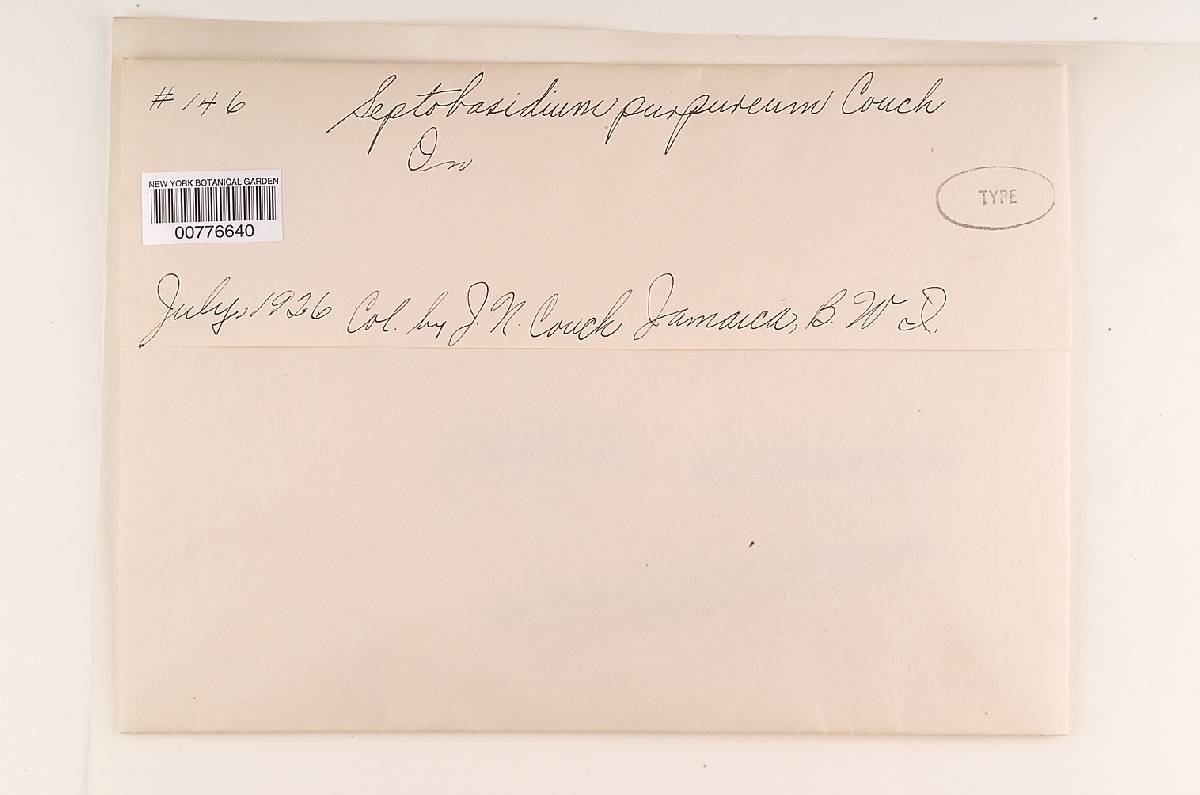 # 146 Septobasidium purpureum Couch
On
NEW YORK BOTANICAL GARDEN
00776640
TYPE
July, 1926 Col. by J. N. Couch Jamaica, B. W. I.